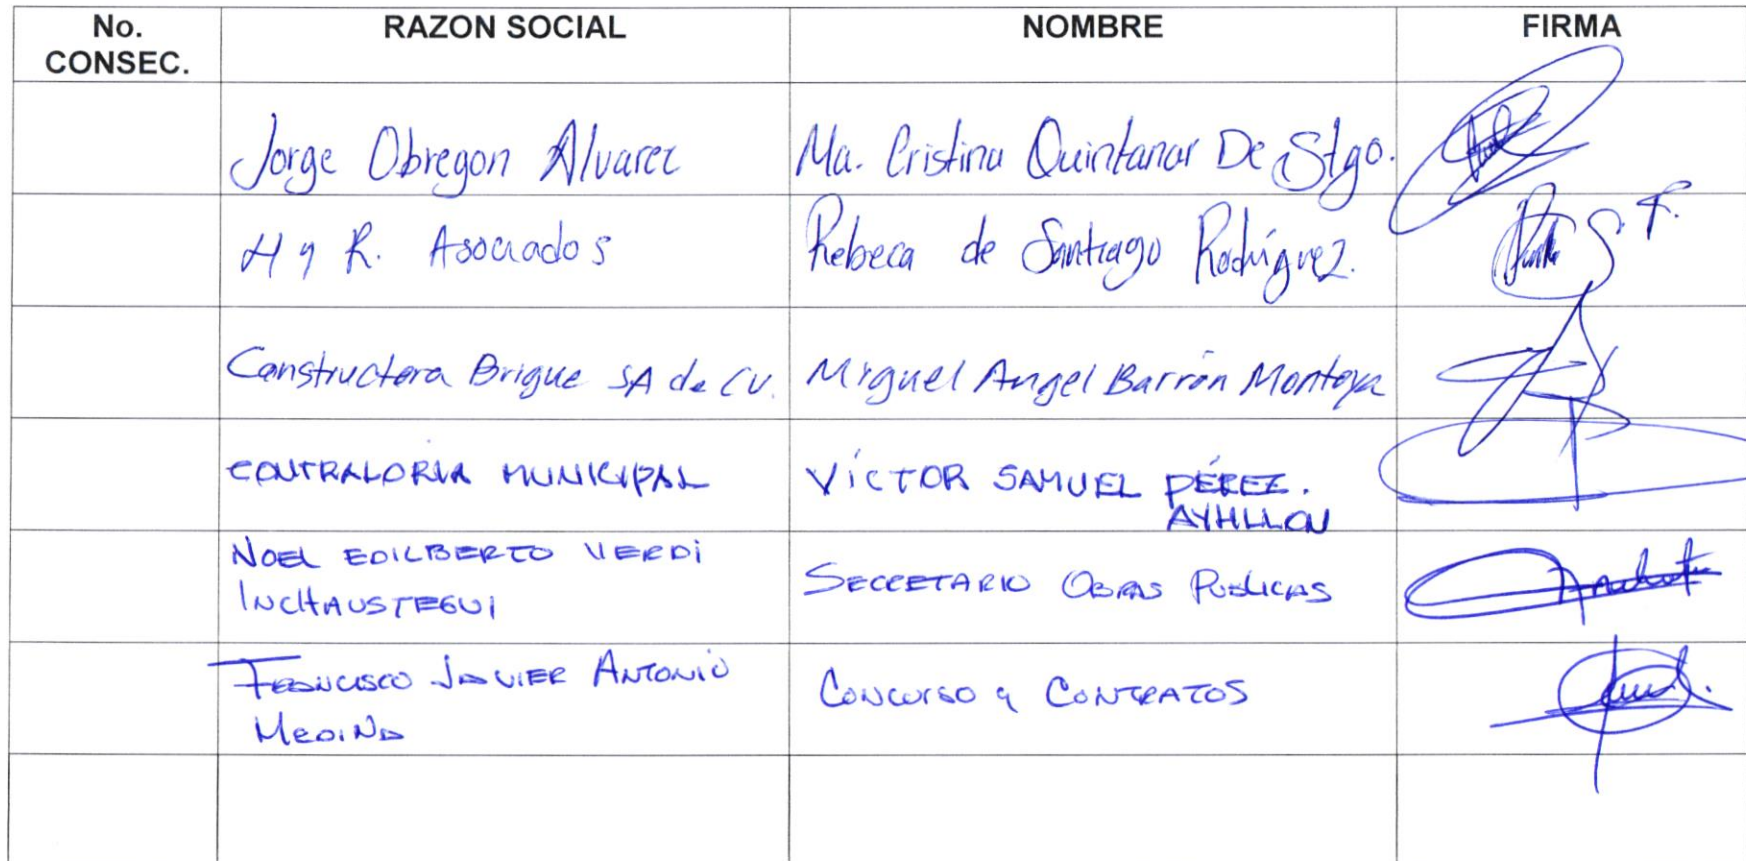 No. CONSEC. RAZON SOCIAL NOMBRE FIRMA
Jorge Obregon Alvarez Ma. Cristina Quintanar De Stgo.
H y R. Asociados Rebeca de Santiago Rodríguez.
Constructora Brigue SA de CV. Miguel Angel Barrón Montoya
CONTRALORIA MUNICIPAL VÍCTOR SAMUEL PÉREZ.
AYHLLON
NOEL EDILBERTO VERDI
INCHAUSTEGUI SECRETARIO OBRAS PUBLICAS
FRANCISCO JAVIER ANTONIO
MEDINA CONCURSO y CONTRATOS